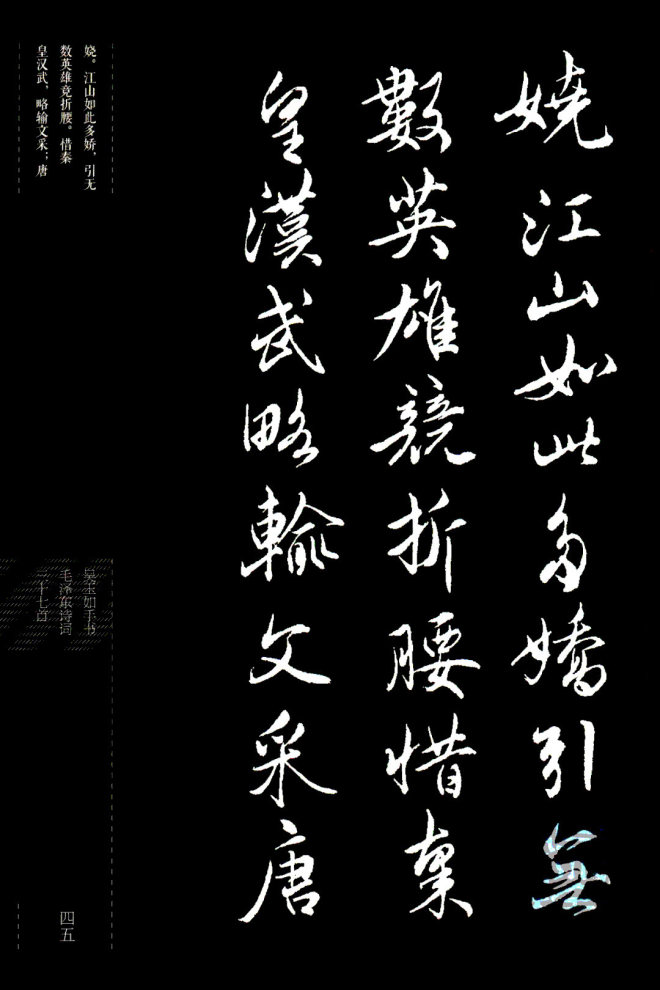 嬈江山如此多嬌引無
數英雄競折腰惜秦
皇漢武略輸文采唐
娆。江山如此多娇，引无
数英雄竞折腰。惜秦
皇汉武，略输文采；唐
吴玉如手书
毛泽东诗词
二十七首
四五